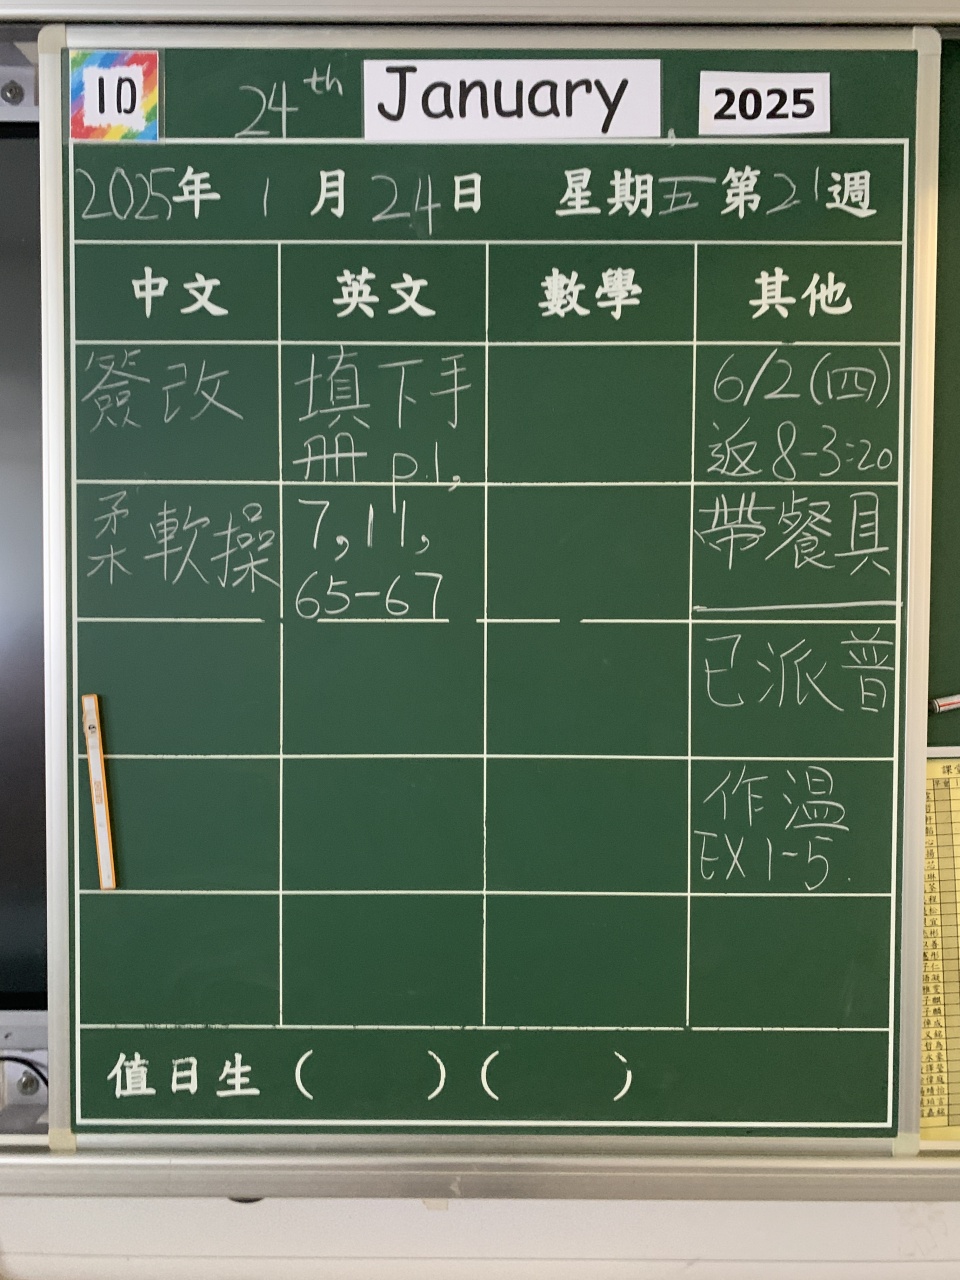 1D 24th January, 2025
2025年1月24日 星期五第21週
中文 英文 數學 其他
簽改
柔軟操
填下手
冊 p.1,
7, 17,
65-67
6/2(四)
返8-3:20
帶餐具
已派普
作溫
EX 1-5.
值日生( )( )